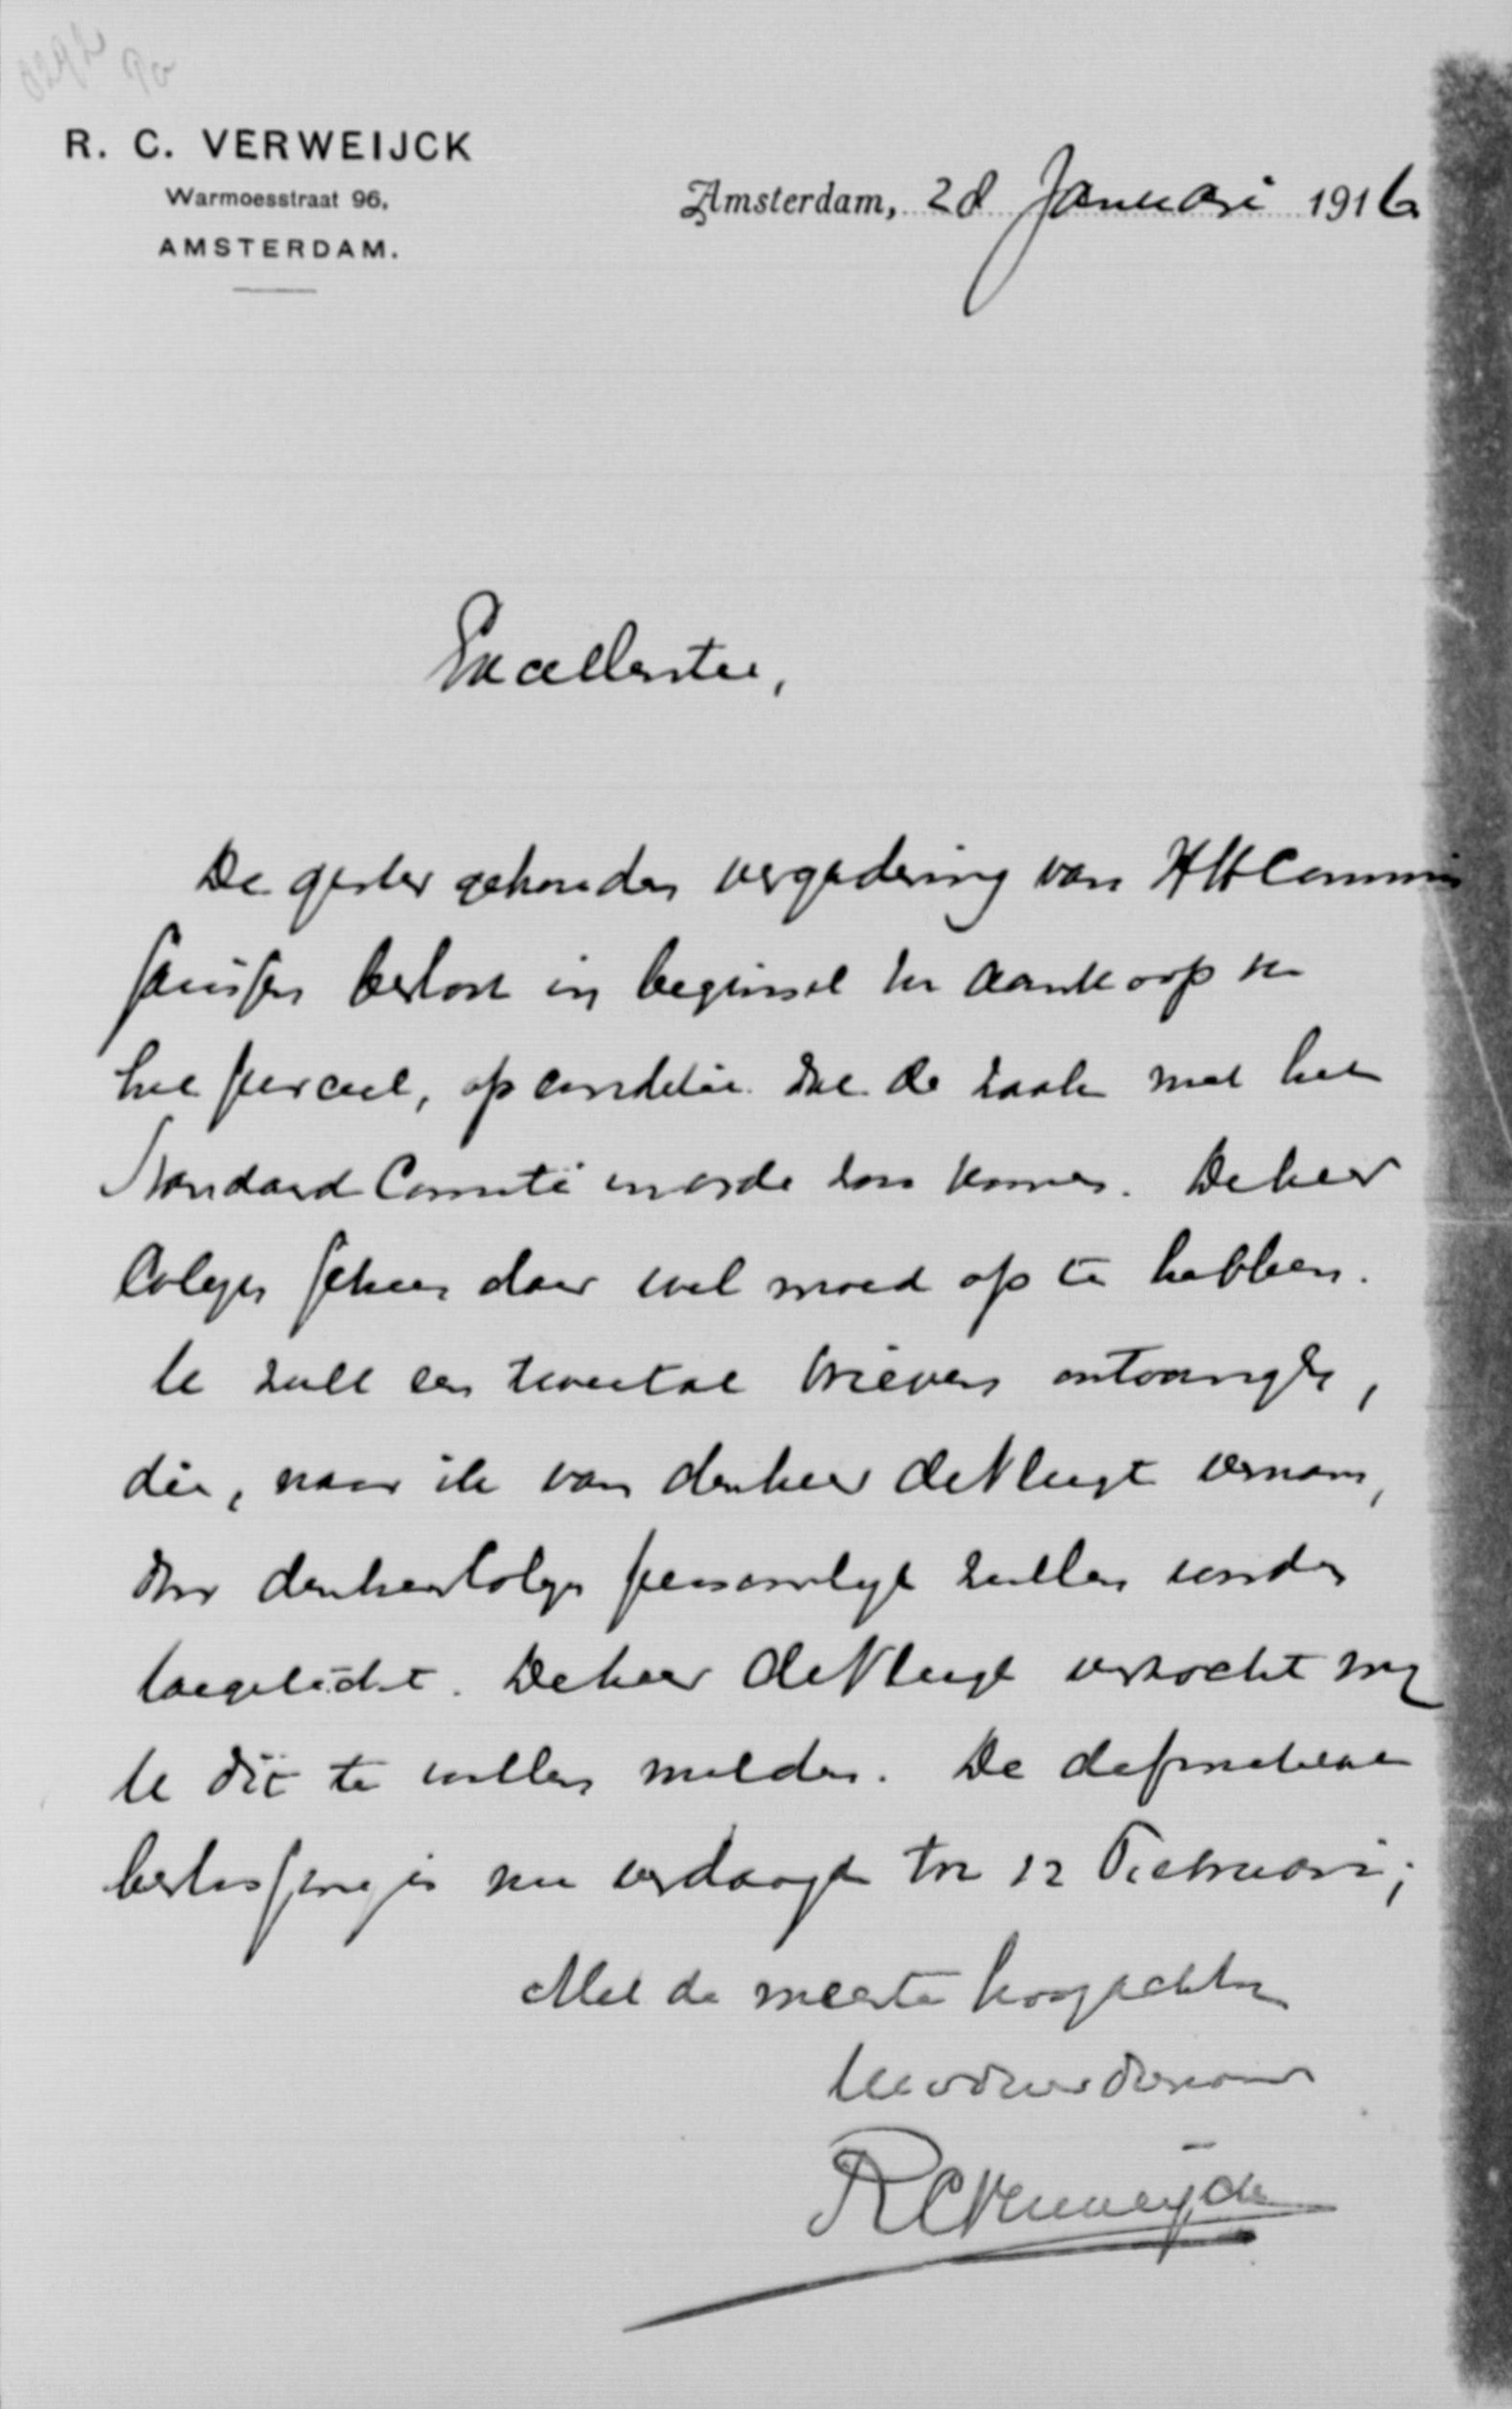 R. C. VERWEIJCK
Warmoesstraat 96,
AMSTERDAM.
Amsterdam, 28 Januari 1916
Excellentie,
De gister gehouden vergadering van HH Commis
sarissen besloot in beginsel tot aankoop van
het perceel, op conditie dat de zaak met het
Standaard Comité in orde zou komen. De heer
Colijn scheen daar wel moed op te hebben.
U zult een tweetal brieven ontvangen,
die, naar ik van den heer de Vlugt vernam,
door den heer Colijn persoonlijk zullen worden
toegelicht. De heer de Vlugt verzocht mij
U dit te willen melden. De definitieve
beslissing is nu verdaagd tot 12 Februari;
Met de meeste hoogachting
Uw dw dienaar
RCVerweijck